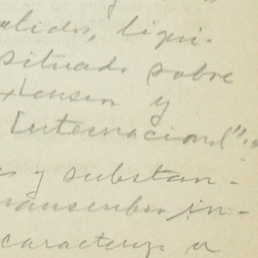 alidos, liqui-
situado sobre
xtension y
Internacional".
s y substan-
ranscriben in-
caracteriza a